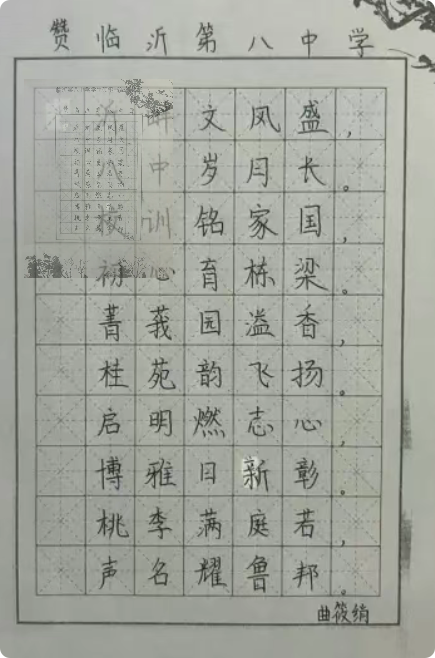 赞临沂第八中学
沂畔文风盛，
中岁月长。
校训铭家国，
初心育栋梁。
菁莪园溢香，
桂苑韵飞扬。
启明燃志心，
博雅日新彰。
桃李满庭若，
声名耀鲁邦。
曲筱绡